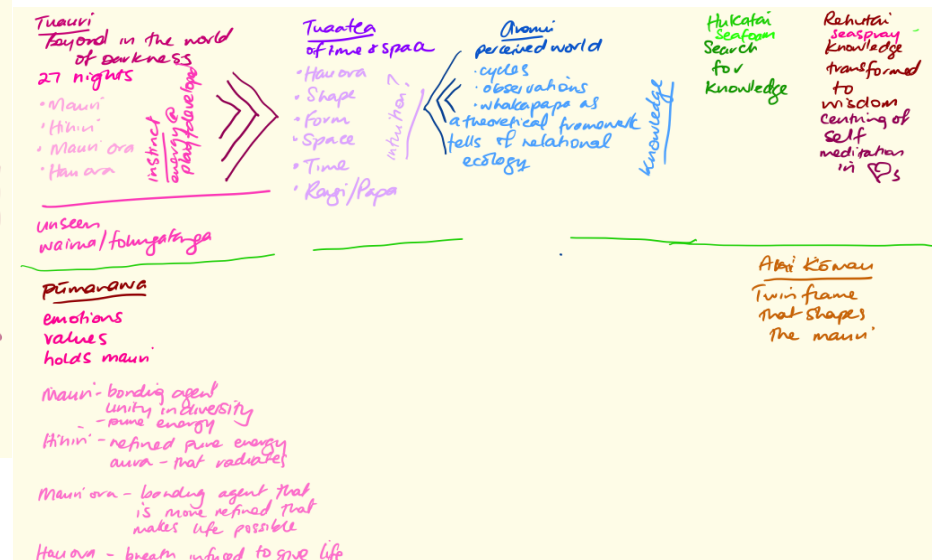 Tuauri
beyond in the world
of darkness
27 nights
• Mauri
• Hihiri
• Mauri ora
• Hau ora
instinct
energy @
play/developed
unseen
wairua/
Tuaatea
of time & space
• Hau ora
• Shape
• Form
• Space
• Time
• Rangi/Papa
intuition?
Aronui
perceived world
• cycles
• observations
• whakapapa as
a theoretical framework
tells of relational
ecology
Knowledge
Hukatai
seafoam
Search
for
knowledge
Rehutai
seaspray
knowledge
transformed
to
wisdom
centring of
self
meditation
in
Pūmanawa
emotions
values
holds mauri
Mauri - bonding agent
unity in diversity
- pure energy
Hihiri - refined pure energy
aura - that radiates
Mauri ora - bonding agent that
is more refined that
makes life possible
Hau ora - breath infused to give life
Kōmau
Twin frame
that shapes
the mauri